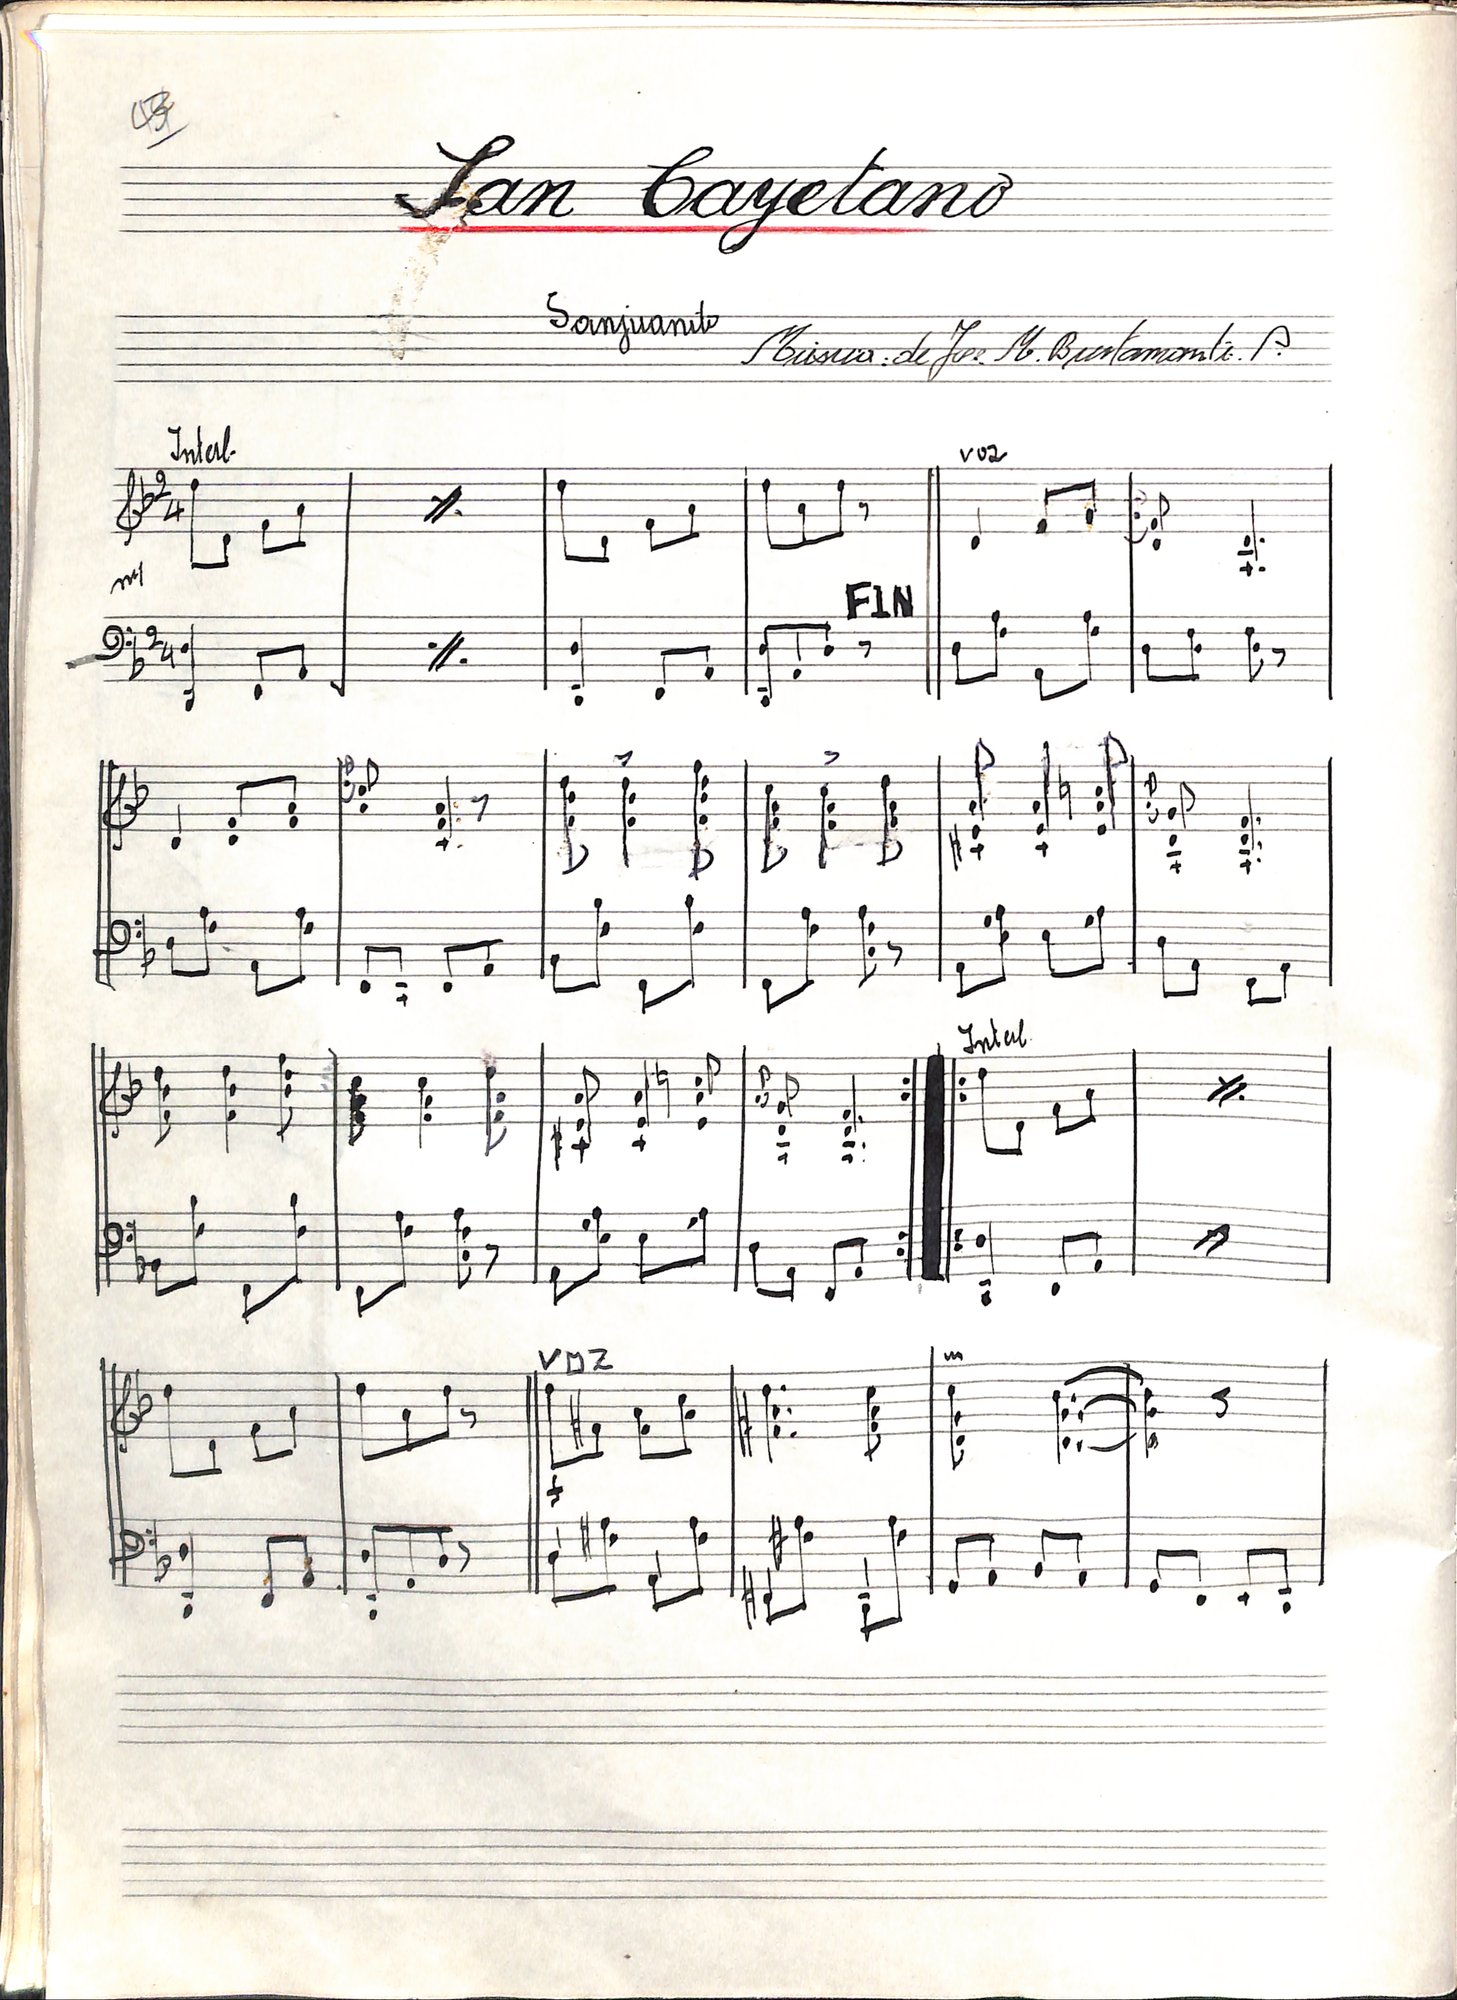 San Cayetano
Sanjuanito
Música: de José M. Bustamante. P.
Interl.
voz
mf
FIN
Interl.
VOZ